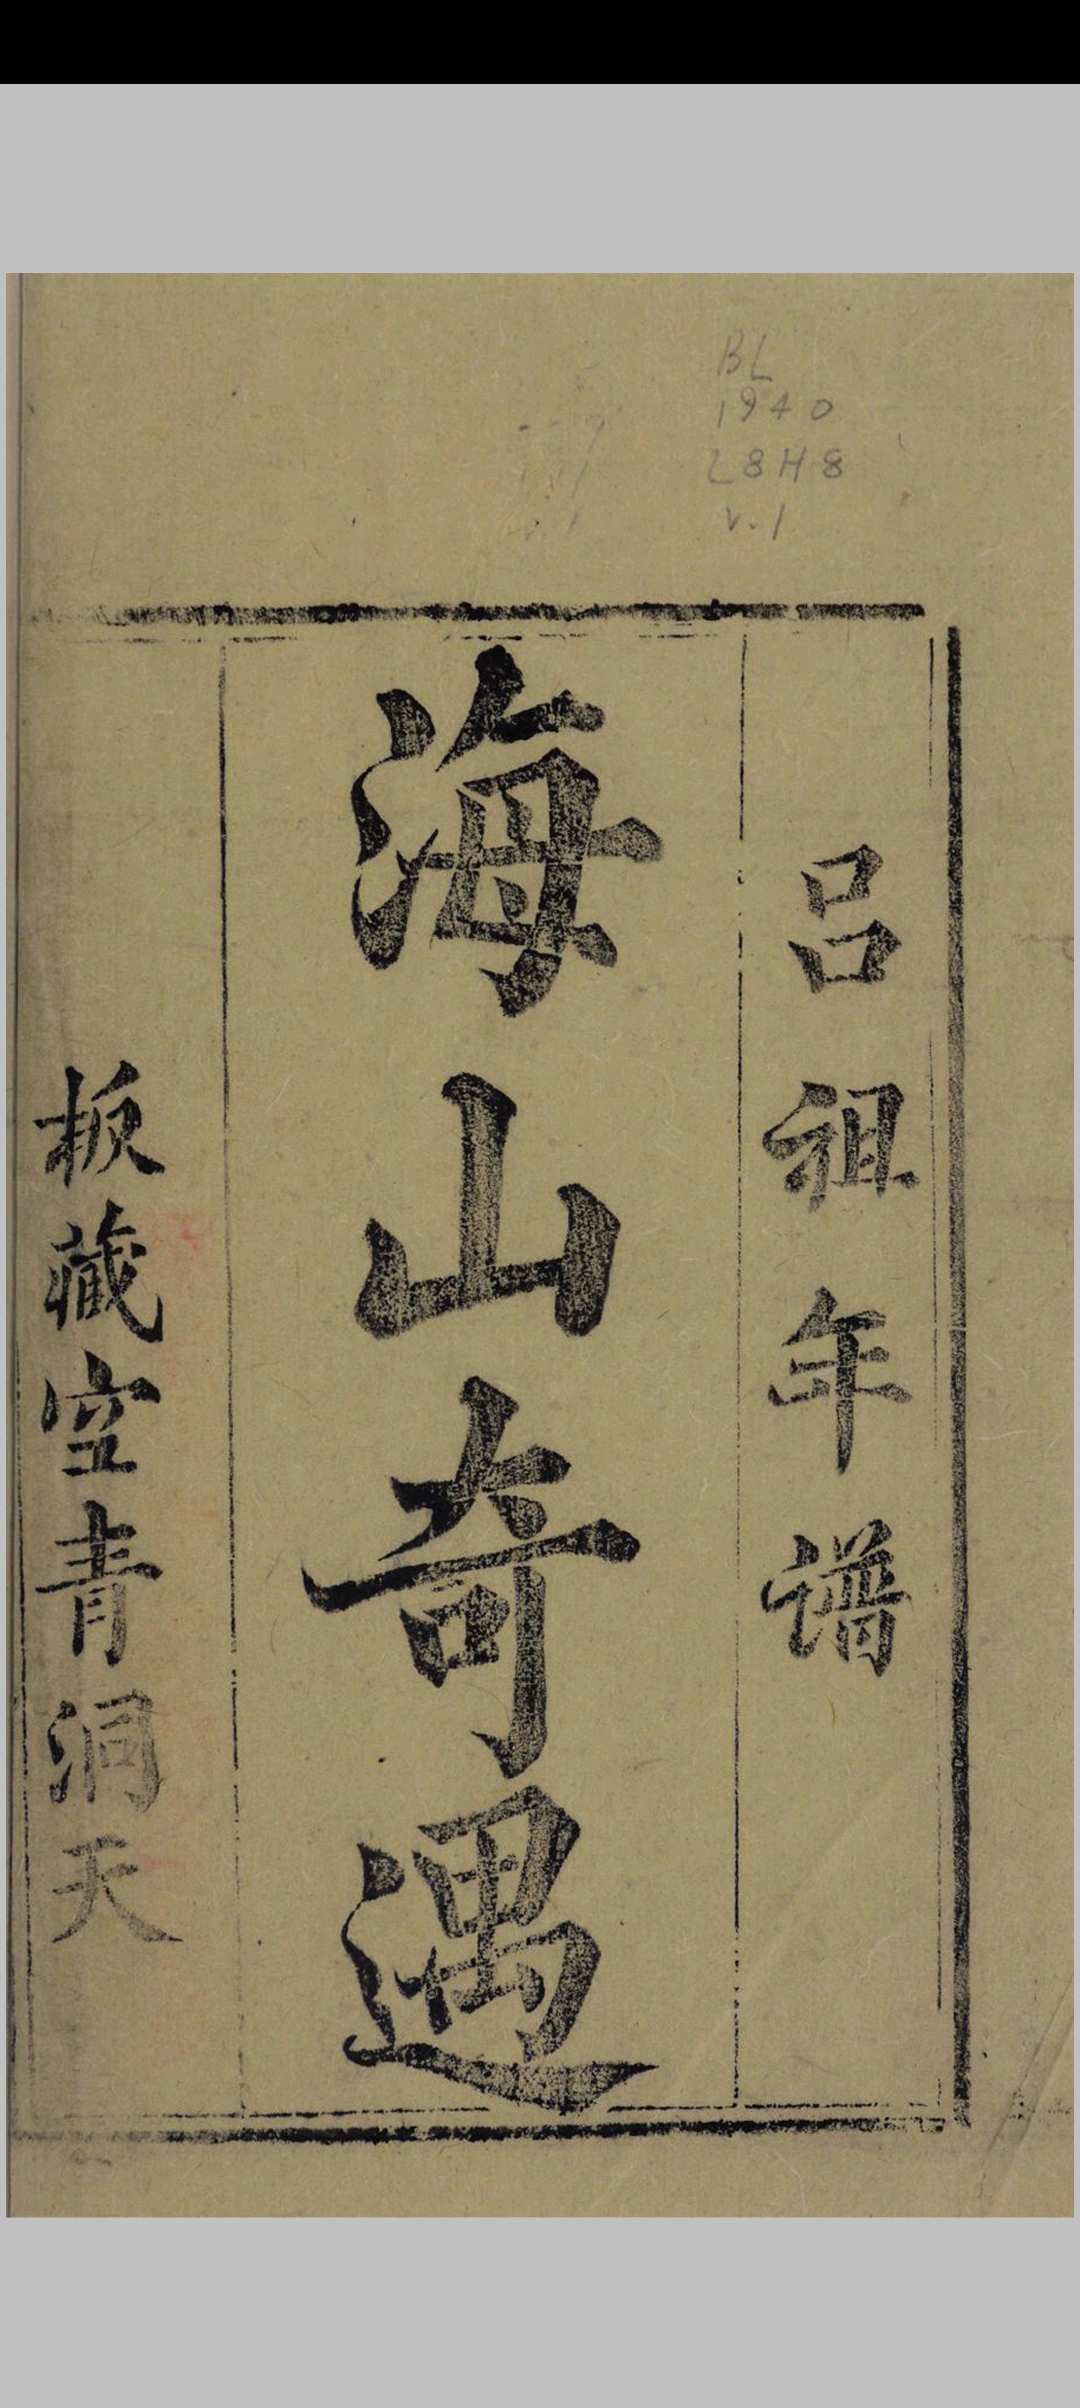 BL
1940
L8H8
v.1
吕祖年譜
海山奇遇
板藏空青洞天